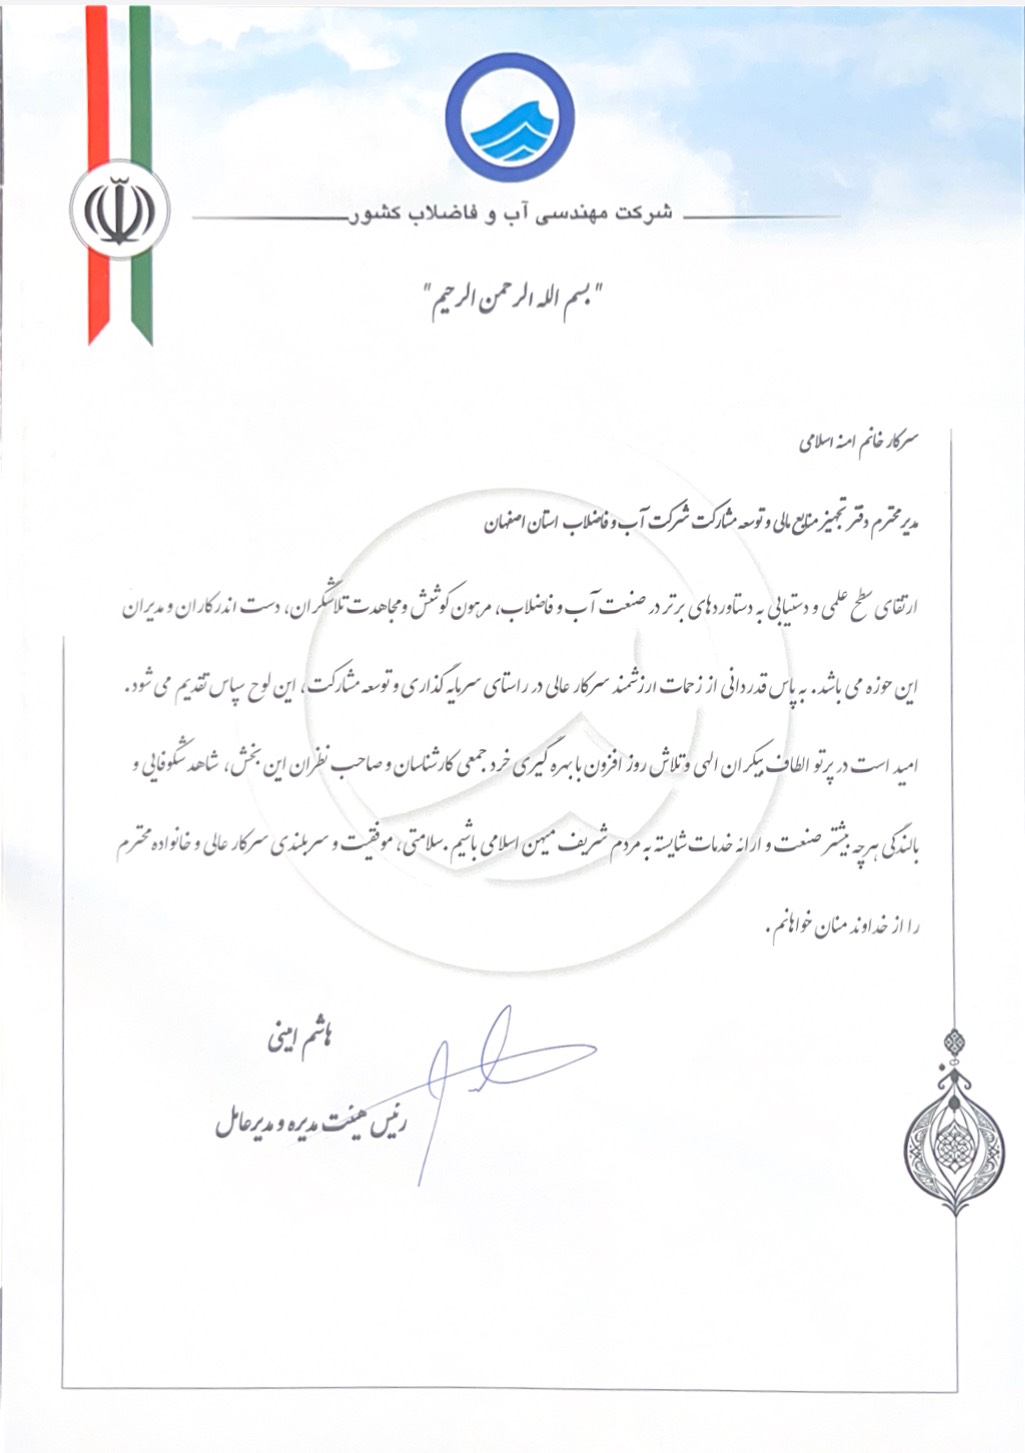 شرکت مهندسی آب و فاضلاب کشور
"بسم الله الرحمن الرحیم"
سرکار خانم امنه اسلامی
مدیر محترم دفتر تجهیز منابع مالی و توسعه مشارکت شرکت آب و فاضلاب استان اصفهان
ارتقای سطح علمی و دستیابی به دستاوردهای برتر در صنعت آب و فاضلاب، مرهون کوشش و مجاهدت تلاشگران، دست اندرکاران و مدیران
این حوزه می باشد. به پاس قدردانی از زحمات ارزشمند سرکار عالی در راستای سرمایه گذاری و توسعه مشارکت، این لوح سپاس تقدیم می شود.
امید است در پرتو الطاف بیکران الهی و تلاش روز افزون با بهره گیری خرد جمعی کارشناسان و صاحب نظران این بخش، شاهد شکوفایی و
بالندگی هرچه بیشتر صنعت و ارائه خدمات شایسته به مردم شریف میهن اسلامی باشیم. سلامتی، موفقیت و سربلندی سرکار عالی و خانواده محترم
را از خداوند منان خواهانم.
هاشم امینی
رئیس هیئت مدیره و مدیرعامل